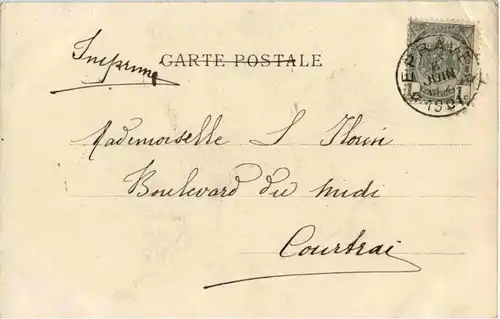 Imprimé
CARTE POSTALE
EPRAVE
JUIN
1901
Mademoiselle L Florin
Boulevard du midi
Courtrai